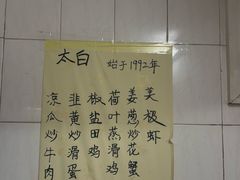 太白 始于1992年
姜葱炒花蟹
荷叶蒸滑鸡
椒盐田鸡
韭黄炒滑蛋
凉瓜炒牛肉